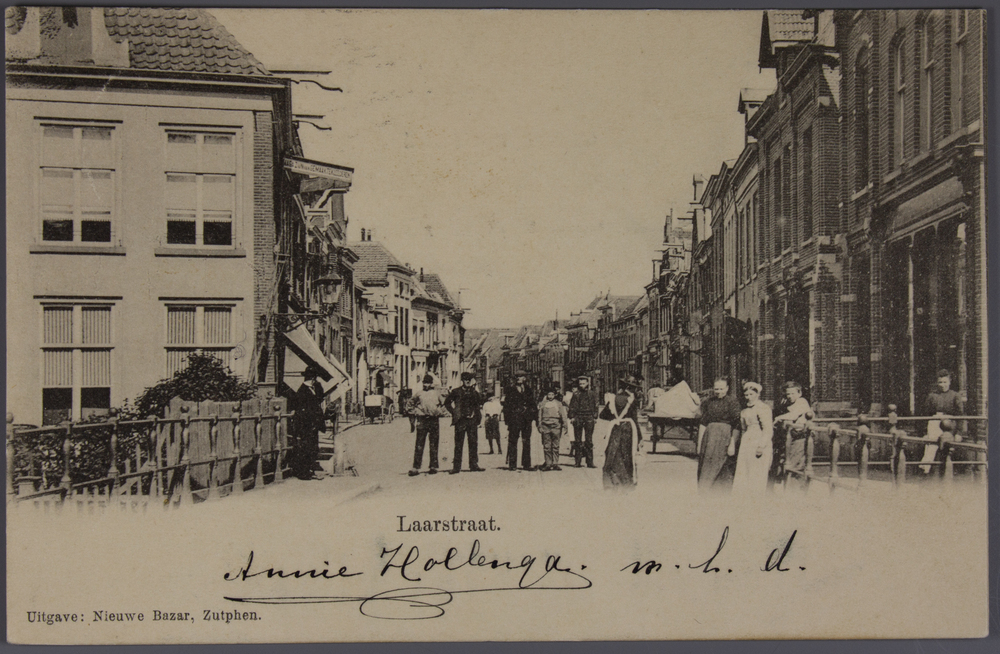 Laarstraat.
Annie Hollenga. m. h. d.
Uitgave: Nieuwe Bazar, Zutphen.